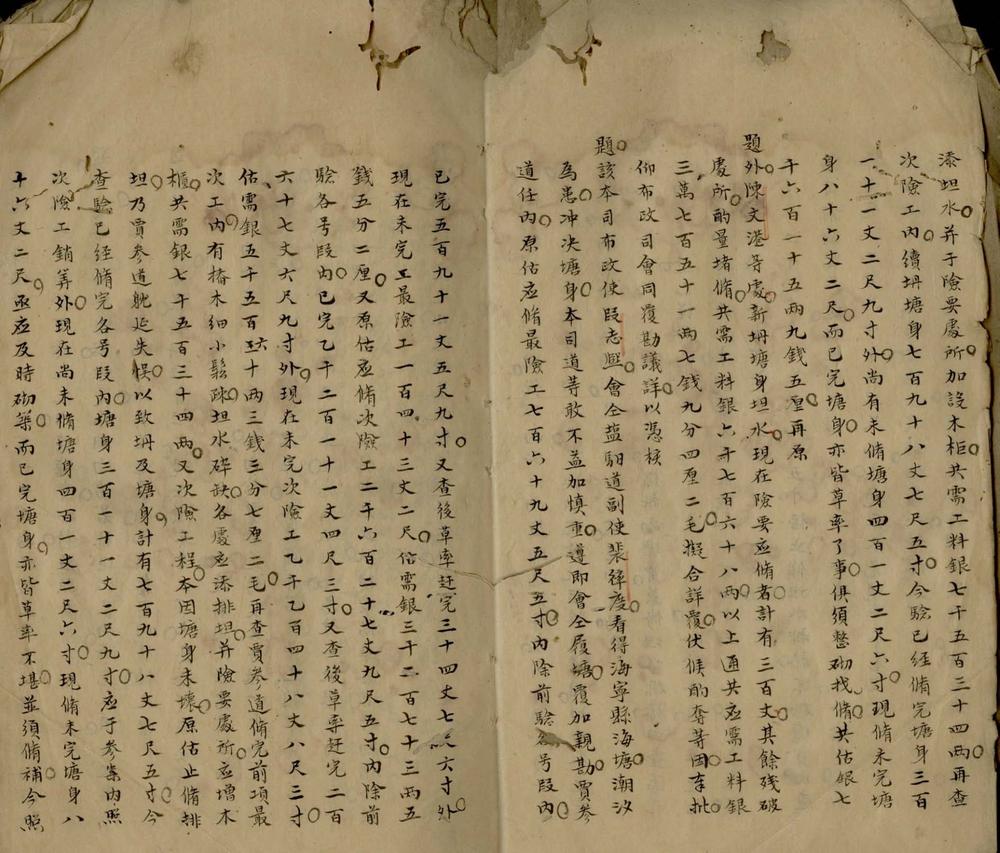 添坦水并于險要處所加設木柜共需工料銀七千五百三十四兩再查
次險工內續坍塘身七百九十八丈七尺五寸今驗已經脩完塘身三百
一十一丈二尺九寸外尚有未脩塘身四百一丈二尺六寸現脩未完塘
身八十六丈二尺而已完塘身亦皆草率了事俱須整砌找脩共估銀七
千六百一十五兩九錢五厘再原
題外陳文港等處新坍塘身坦水現在險要應脩者計有三百丈其餘殘破
處所酌量堵脩共需工料銀六千七百六十八兩以上通共應需工料銀
三萬七百五十一兩七錢九分四厘二毛擬合詳覆伏候酌奪等因奉批
仰布政司會同覆勘議詳以憑核
題該本司布政使段志熙會仝塩馹道副使裴𢔎度看得海寧縣海塘潮汐
為患冲决塘身本司道等敢不益加慎重遵即會仝履塘覆加親勘賈參
道任內原估應脩最險工七百六十九丈五尺五寸內除前驗各号段內
已完五百九十一丈五尺九寸又查後草率赶完三十四丈七尺六寸外
現在未完工最險工一百四十三丈二尺估需銀三千二百七十三兩五
錢五分二厘又原估應脩次險工二千六百二十七丈九尺五寸內除前
驗各号段內已完乙千二百一十一丈四尺三寸又查後草率赶完二百
六十七丈六尺九寸外現在未完次險工乙千乙百四十八丈八尺三寸
估需銀五千五百六十兩三錢三分七厘二毛再查賈參道脩完前項最
次工內有樁木細小鬆踈坦水碎缺各處應添排坦并險要處所應增木
櫃共需銀七千五百三十四兩又次險工程本因塘身未壞原估止脩排
坦乃賈參道躭延失悞以致坍及塘身計有七百九十八丈七尺五寸今
查驗已經脩完各号段內塘身三百一十一丈二尺九寸應于參案內照
次險工銷筭外現在尚未脩塘身四百一丈二尺六寸現脩未完塘身八
十六丈二尺亟應及時砌築而已完塘身亦皆草率不堪並須脩補今照